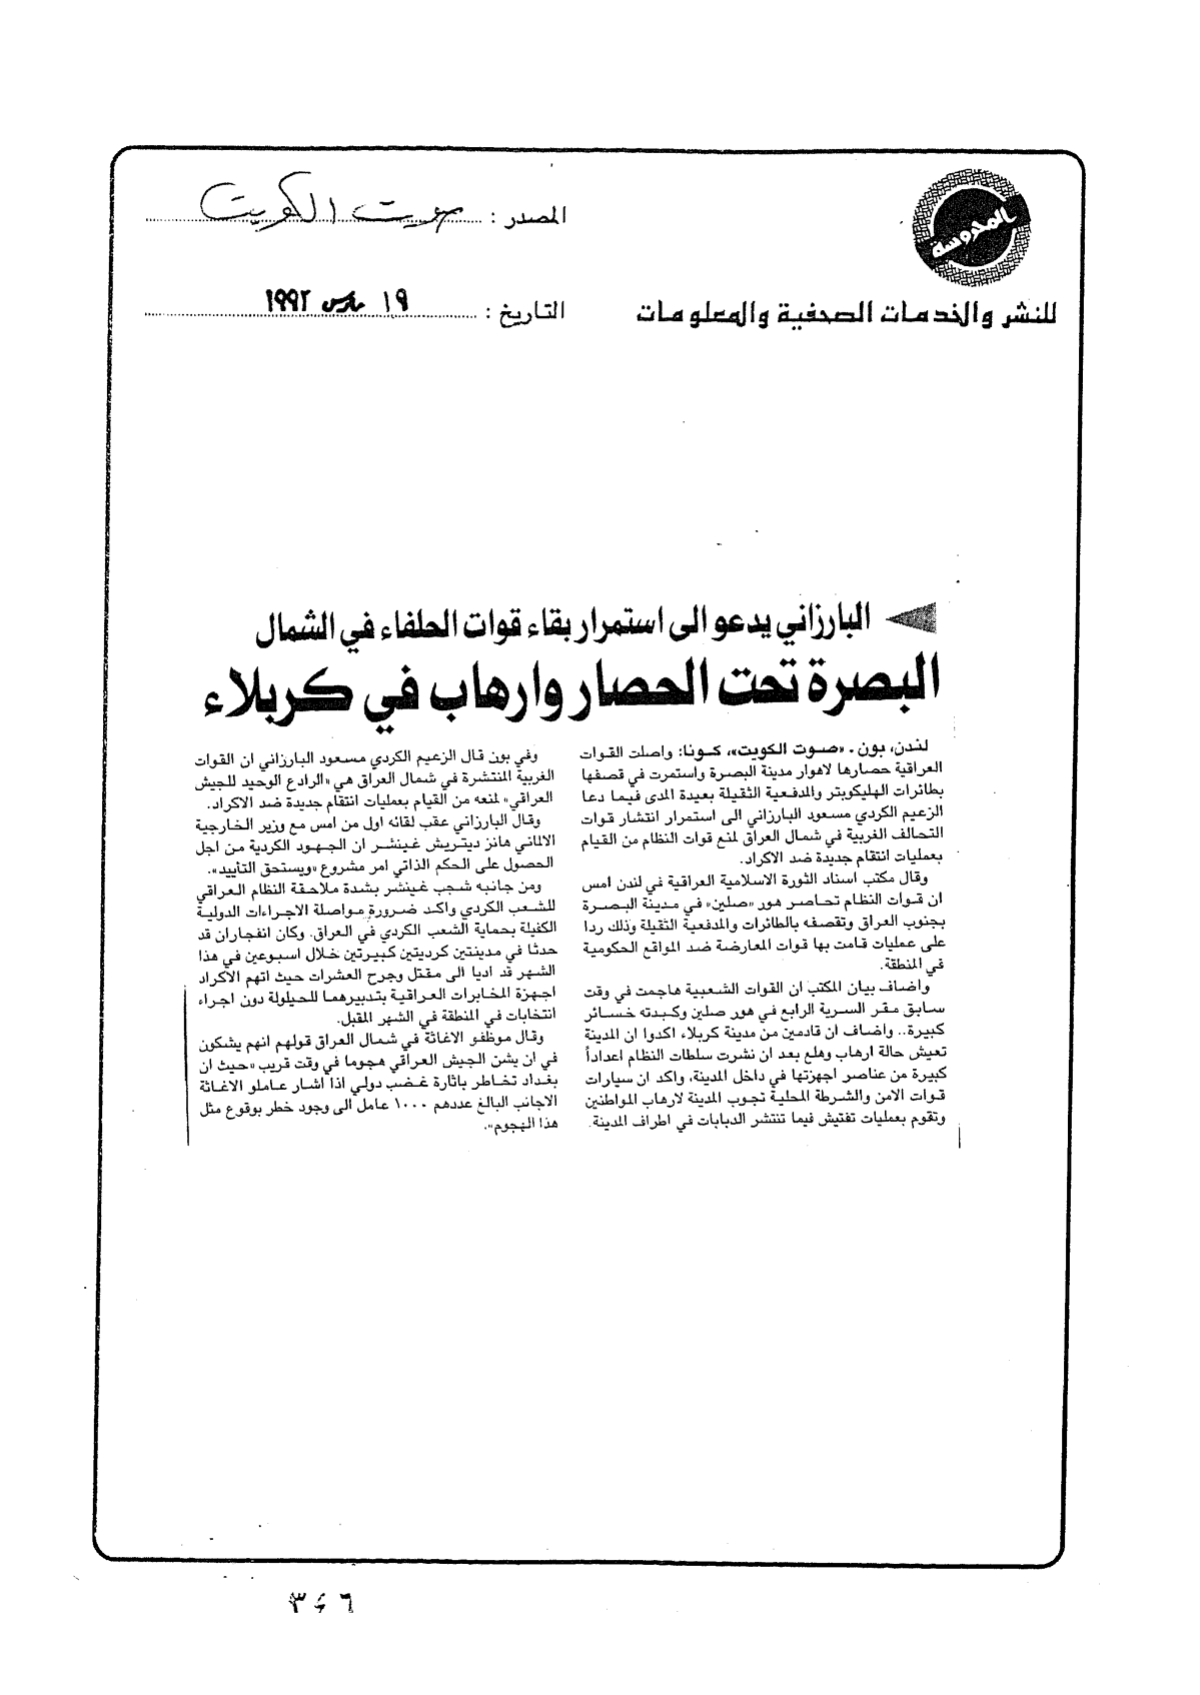 المحروسة
المصدر : صوت الكويت
للنشر والخدمات الصحفية والمعلومات
التاريخ : ١٩ مارس ١٩٩٢
البارزاني يدعو الى استمرار بقاء قوات الحلفاء في الشمال
البصرة تحت الحصار وارهاب في كربلاء
لندن، بون ـ «صوت الكويت»، كونا: واصلت القوات
العراقية حصارها لاهوار مدينة البصرة واستمرت في قصفها
بطائرات الهليكوبتر والمدفعية الثقيلة بعيدة المدى فيما دعا
الزعيم الكردي مسعود البارزاني الى استمرار انتشار قوات
التحالف الغربية في شمال العراق لمنع قوات النظام من القيام
بعمليات انتقام جديدة ضد الاكراد.
وقال مكتب اسناد الثورة الاسلامية العراقية في لندن امس
ان قوات النظام تحاصر هور «صلين» في مدينة البصرة
بجنوب العراق وتقصفه بالطائرات والمدفعية الثقيلة وذلك ردا
على عمليات قامت بها قوات المعارضة ضد المواقع الحكومية
في المنطقة.
واضاف بيان المكتب ان القوات الشعبية هاجمت في وقت
سابق مقر السرية الرابع في هور صلين وكبدته خسائر
كبيرة.. واضاف ان قادمين من مدينة كربلاء اكدوا ان المدينة
تعيش حالة ارهاب وهلع بعد ان نشرت سلطات النظام اعداداً
كبيرة من عناصر اجهزتها في داخل المدينة، واكد ان سيارات
قوات الامن والشرطة المحلية تجوب المدينة لارهاب المواطنين
وتقوم بعمليات تفتيش فيما تنتشر الدبابات في اطراف المدينة.
وفي بون قال الزعيم الكردي مسعود البارزاني ان القوات
الغربية المنتشرة في شمال العراق هي «الرادع الوحيد للجيش
العراقي» لمنعه من القيام بعمليات انتقام جديدة ضد الاكراد.
وقال البارزاني عقب لقائه اول من امس مع وزير الخارجية
الالماني هانز ديتريش غينشر ان الجهود الكردية من اجل
الحصول على الحكم الذاتي امر مشروع «ويستحق التأييد».
ومن جانبه شجب غينشر بشدة ملاحقة النظام العراقي
للشعب الكردي واكد ضرورة مواصلة الاجراءات الدولية
الكفيلة بحماية الشعب الكردي في العراق. وكان انفجاران قد
حدثا في مدينتين كرديتين كبيرتين خلال اسبوعين في هذا
الشهر قد اديا الى مقتل وجرح العشرات حيث اتهم الاكراد
اجهزة المخابرات العراقية بتدبيرهما للحيلولة دون اجراء
انتخابات في المنطقة في الشهر المقبل.
وقال موظفو الاغاثة في شمال العراق قولهم انهم يشكون
في ان يشن الجيش العراقي هجوما في وقت قريب «حيث ان
بغداد تخاطر باثارة غضب دولي اذا أشار عاملو الاغاثة
الاجانب البالغ عددهم ١٠٠٠ عامل الى وجود خطر بوقوع مثل
هذا الهجوم».
٣٤٦